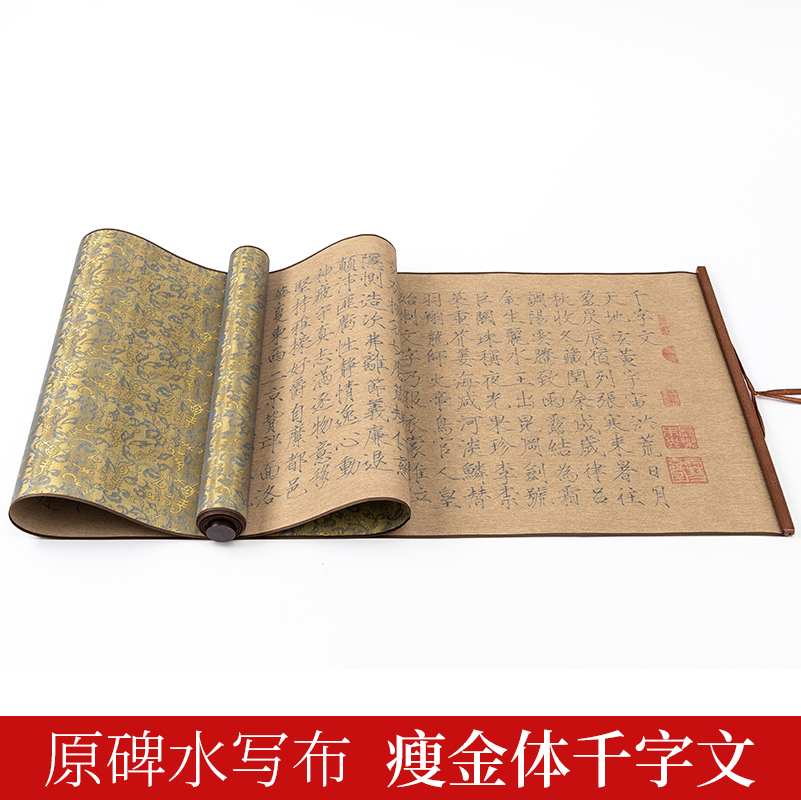 千字文
天地玄黃宇宙洪荒日月
盈昃辰宿列張寒來暑往
秋收冬藏閏余成歲律呂
調陽雲騰致雨露結為霜
金生麗水玉出崑岡劍號
巨闕珠稱夜光果珍李柰
菜重芥薑海鹹河淡鱗潛
羽翔龍師火帝鳥官人皇
始制文字乃服衣裳推位
隱惻造次弗離節義廉退
顛沛匪虧性靜情逸心動
神疲守真志滿逐物意移
堅持雅操好爵自縻都邑
華夏東西二京背邙面洛
原碑水写布 瘦金体千字文